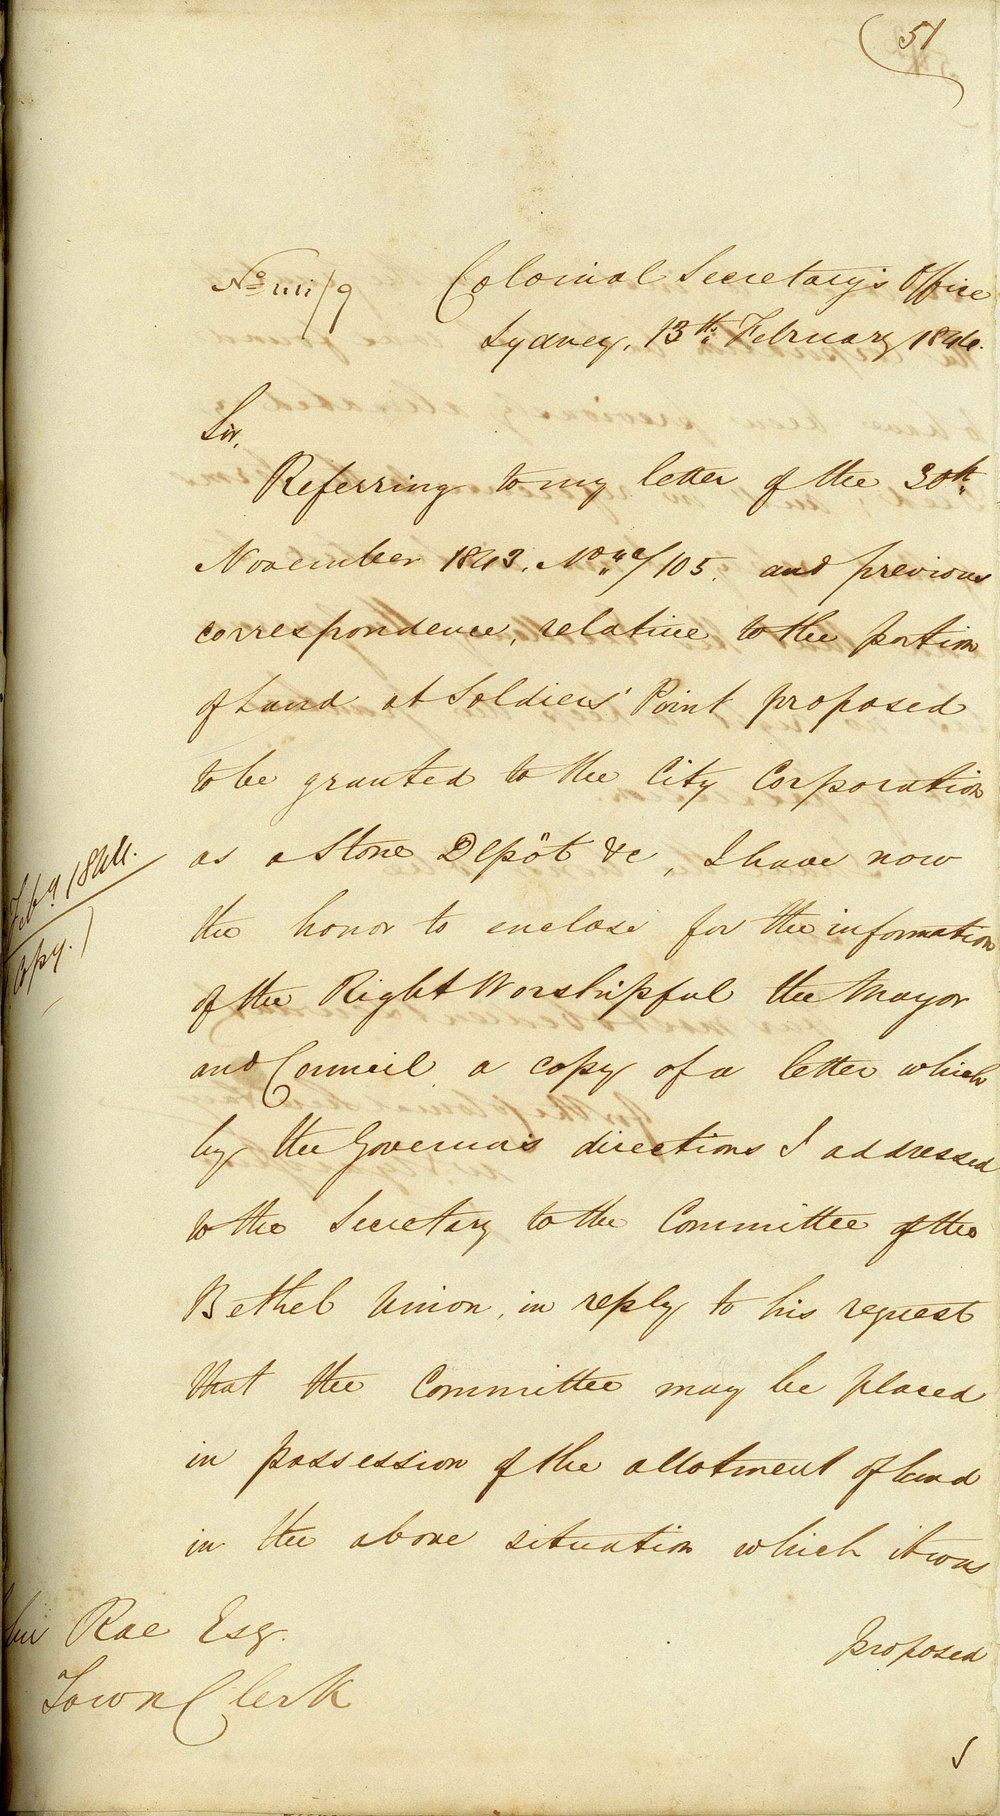 51
Colonial Secretary's Office
Sydney, 13th February 1844.
Sir,
Referring to my letter of the 30th
November 1843, No 44/105. and previous
correspondence, relative to the portion
of Land at Soldiers' Point proposed
to be granted to the City Corporation
as a Stone Depôt &c, I have now
the honor to enclose for the information
of the Right Worshipful the Mayor
and Council a copy of a letter which
by the Governor's directions I addressed
to the Secretary to the Committee of the
Bethel Union, in reply to his request
that the Committee may be placed
in possession of the allotment of land
in the above situation which it was
proposed
Feby 9 1844.
Copy.)
Rae Esq.
Town Clerk